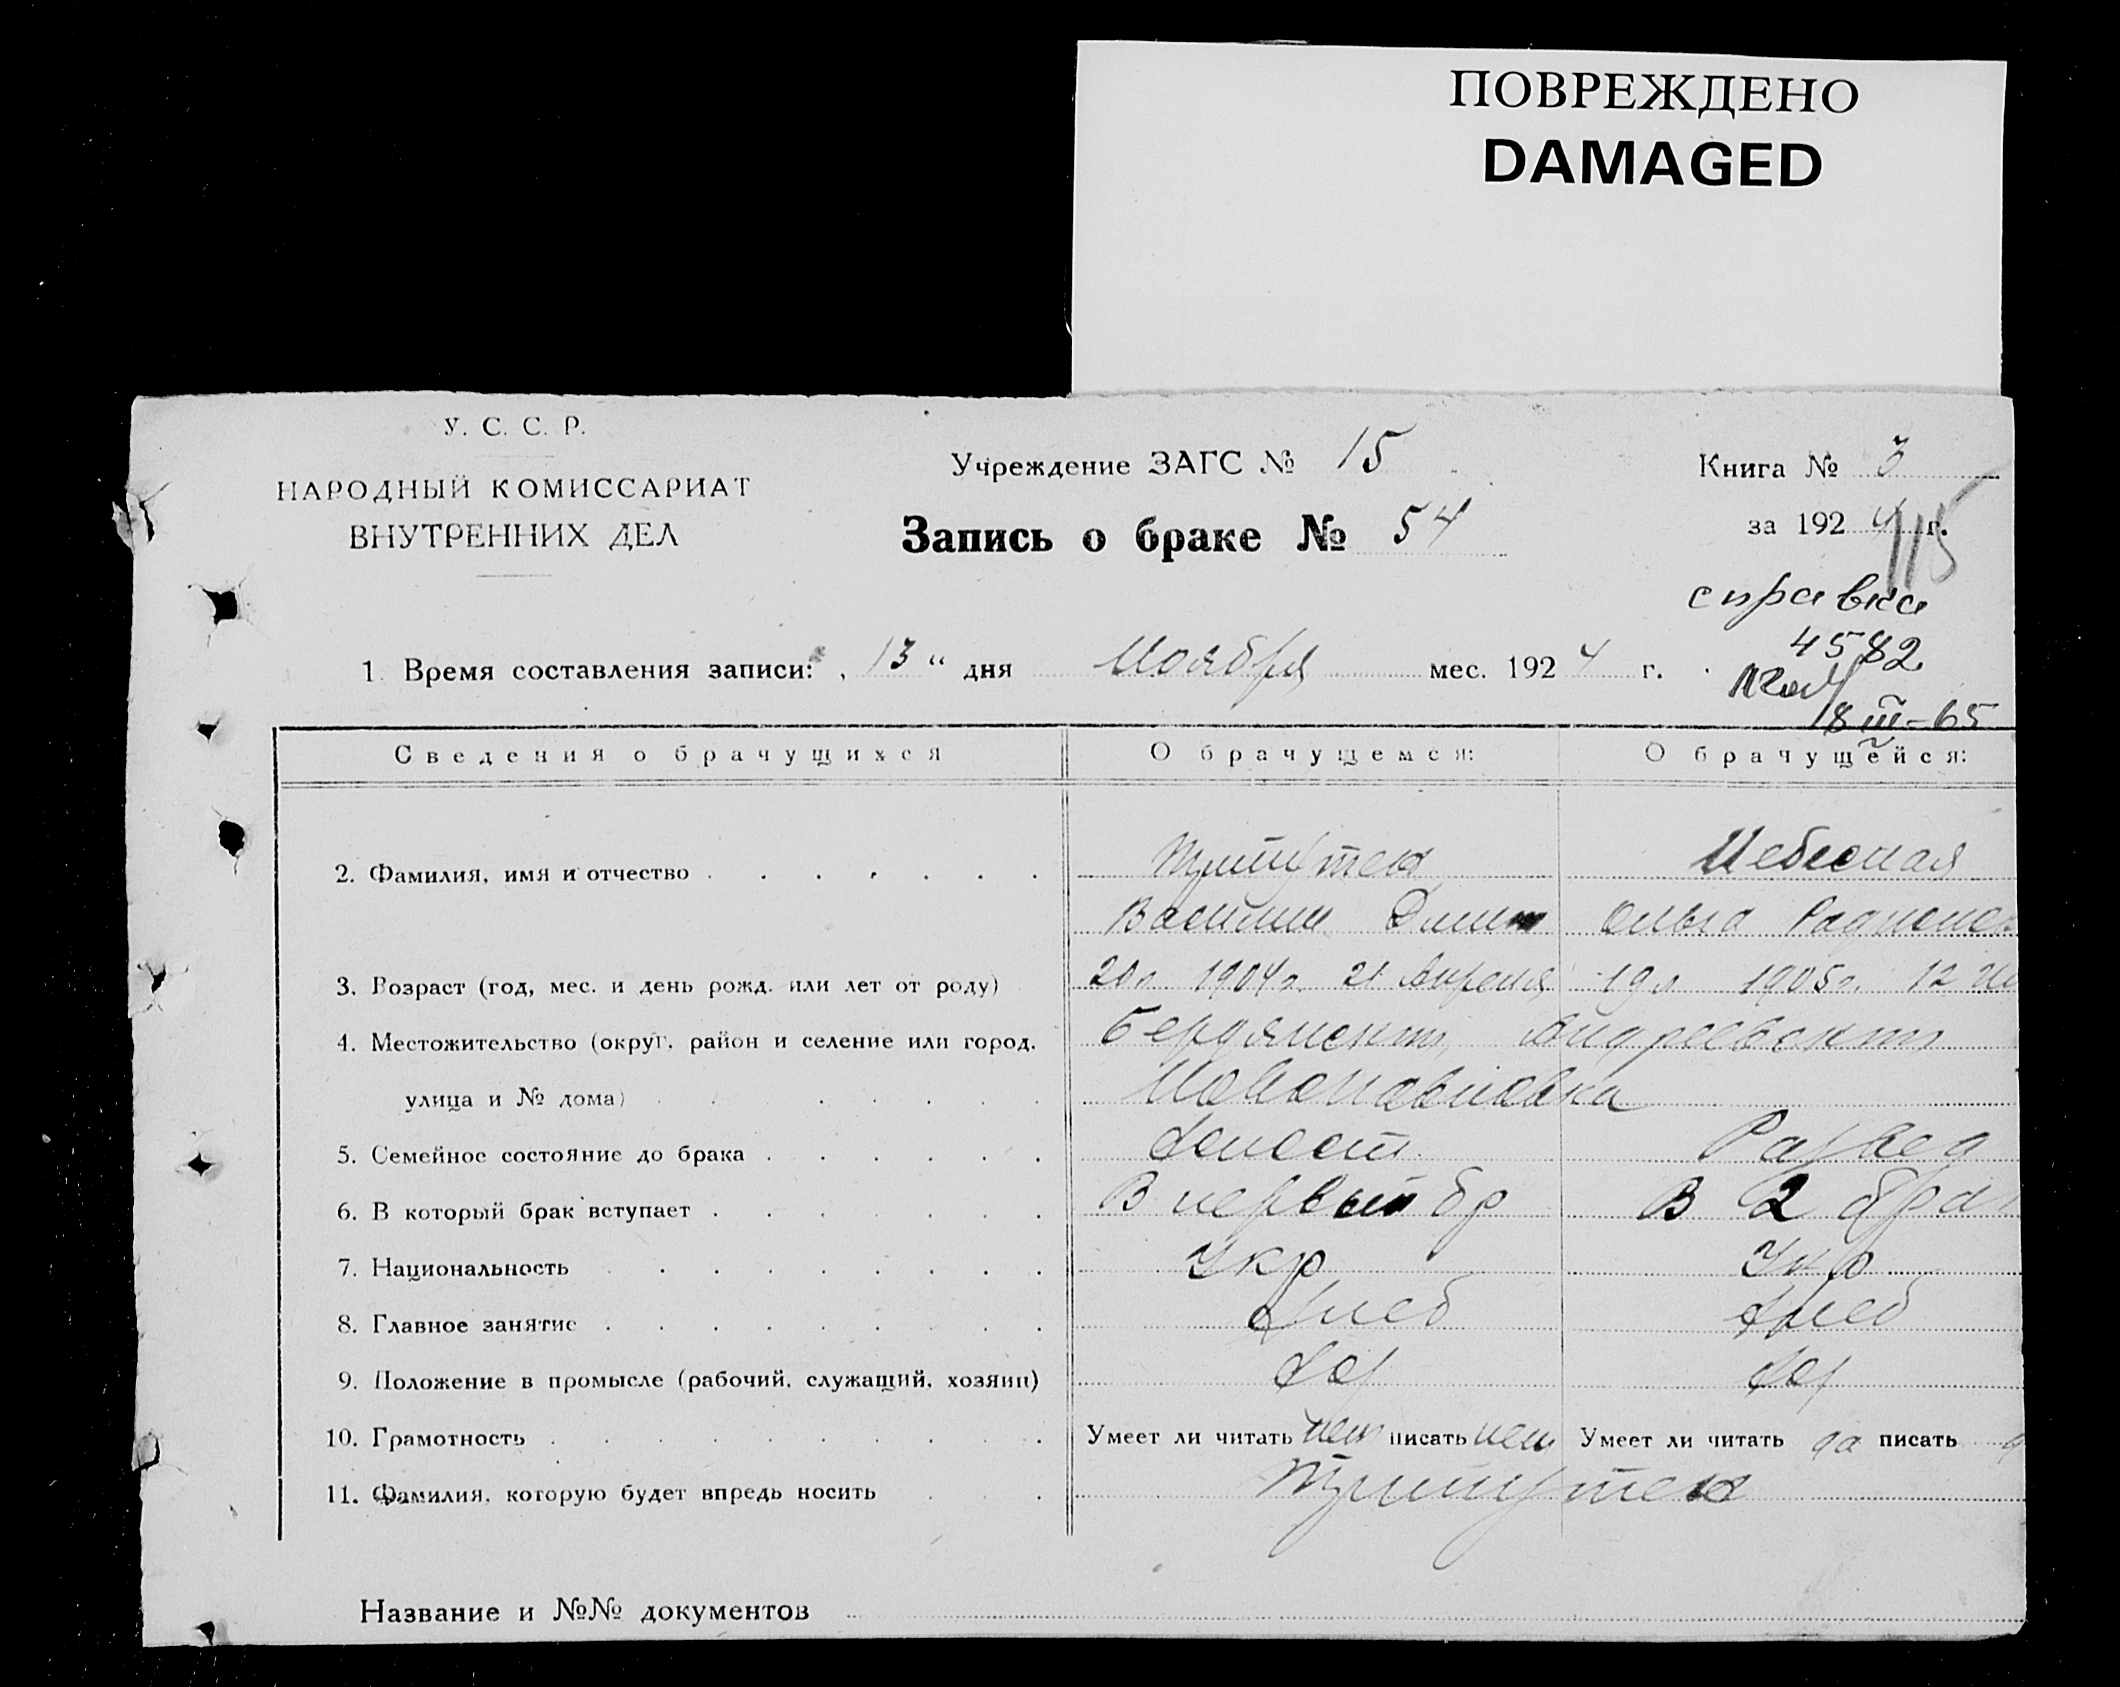 ПОВРЕЖДЕНО
DAMAGED
У. С. С. Р.
НАРОДНЫЙ КОМИССАРИАТ
ВНУТРЕННИХ ДЕЛ
Учреждение ЗАГС № 15
Запись о браке № 54
Книга № 3
за 192 4 г.
115
справка
4582
18 III-65
1. Время составления записи: „ 13 “ дня Ноября мес. 192 4 г.
Сведения о брачущихся О брачущемся: О брачущейся:
2. Фамилия, имя и отчество Небесная
Василий Дмит Ольга Радионов
3. Возраст (год, мес. и день рожд. или лет от роду) 20 л 1904 г. 21 Апреля 19 л 1905 г. 12
4. Местожительство (округ, район и селение или город, Бердянский Андреевский
улица и № дома) Новопавловка
5. Семейное состояние до брака Холост Развед
6. В который брак вступает В первый бр В 2 брак
7. Национальность Укр Укр
8. Главное занятие Хлеб Хлеб
9. Положение в промысле (рабочий, служащий, хозяин) Хоз Хоз
10. Грамотность Умеет ли читать нет писать нет Умеет ли читать да писать
11. Фамилия, которую будет впредь носить
Название и №№ документов